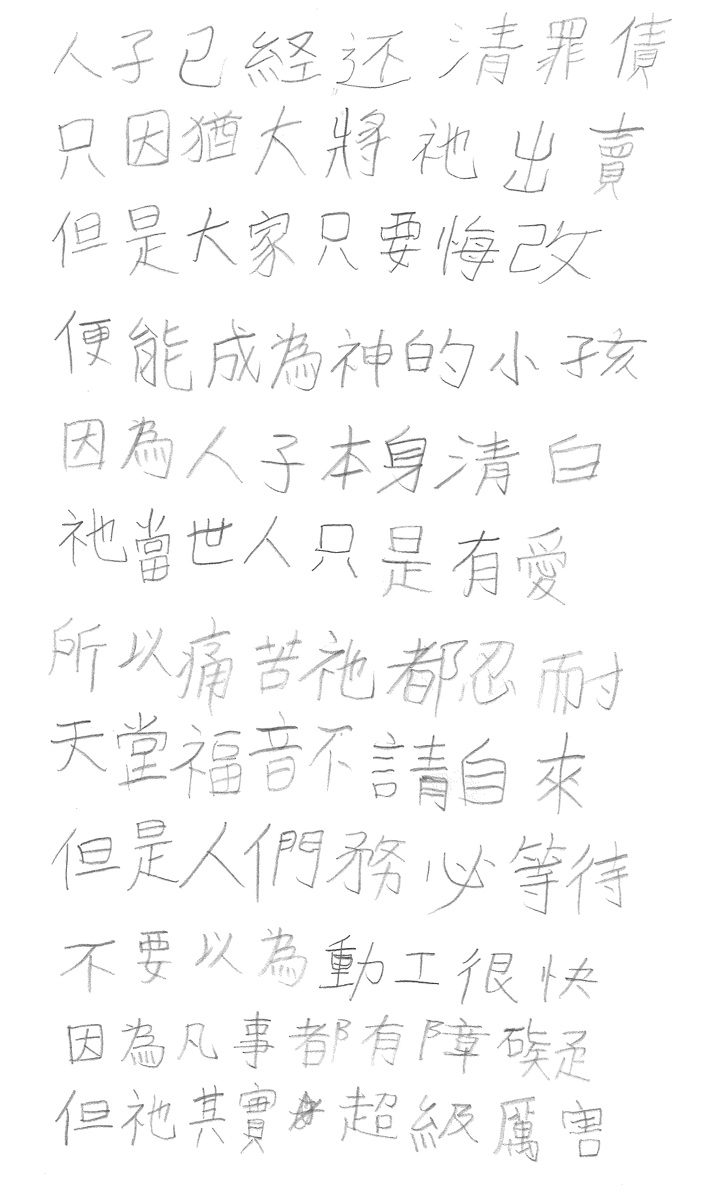 人子已経还清罪債
只因猶大將祂出賣
但是大家只要悔改
便能成為神的小孩
因為人子本身清白
祂當世人只是有愛
所以痛苦祂都忍耐
天堂福音不請自來
但是人們務必等待
不要以為動工很快
因為凡事都有障礙
但祂其實超級厲害